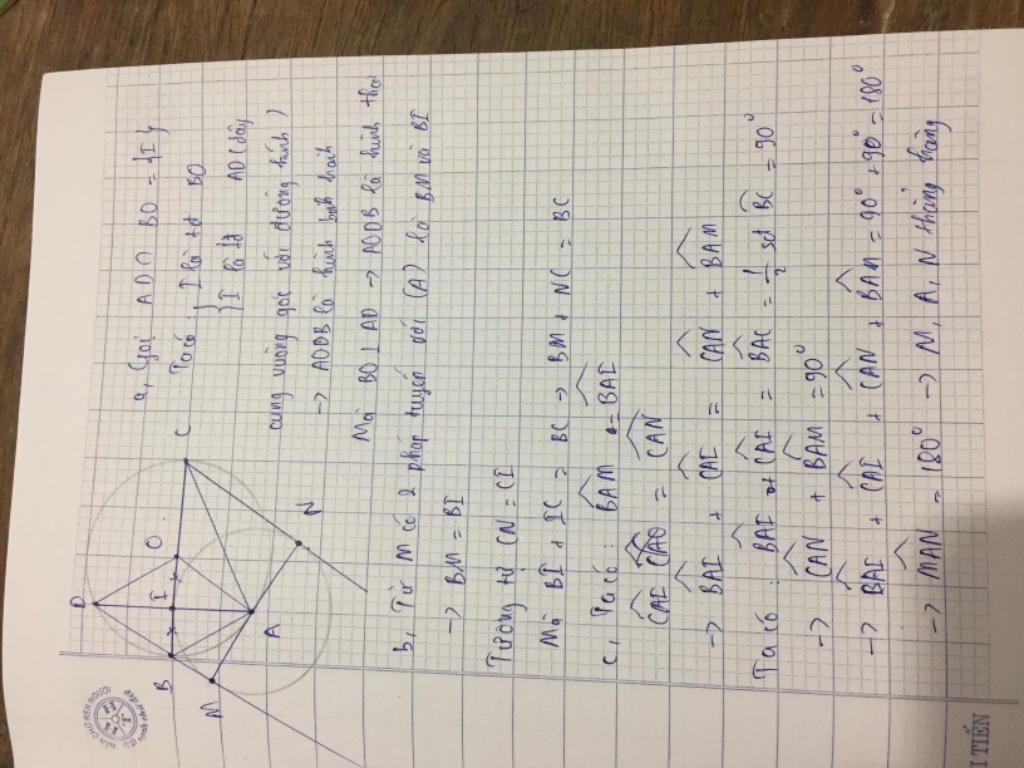 a, Gọi AD ∩ BO = {I}
Ta có : { I là tđ BO
{ I là tđ AD (dây
cung vuông góc với đường kính)
→ AODB là hình bình hành
Mà BO ⊥ AD → AODB là hình thoi
D
B
I
O
C
M
A
N
b, Từ M có 2 pháp tuyến với (A) là BM và BI
→ BM = BI
Tương tự CN = CI
Mà BI + IC = BC → BM + NC = BC
c, Ta có : \widehat{BAM} = \widehat{BAI}
\widehat{CAI} = \widehat{CAN}
→ \widehat{BAI} + \widehat{CAI} = \widehat{CAN} + \widehat{BAM}
Ta có : \widehat{BAI} + \widehat{CAI} = \widehat{BAC} = \frac{1}{2} sđ \widehat{BC} = 90°
→ \widehat{CAN} + \widehat{BAM} = 90°
→ \widehat{BAI} + \widehat{CAI} + \widehat{CAN} + \widehat{BAM} = 90° + 90° = 180°
→ \widehat{MAN} = 180° → M, A, N thẳng hàng
I TIẾN